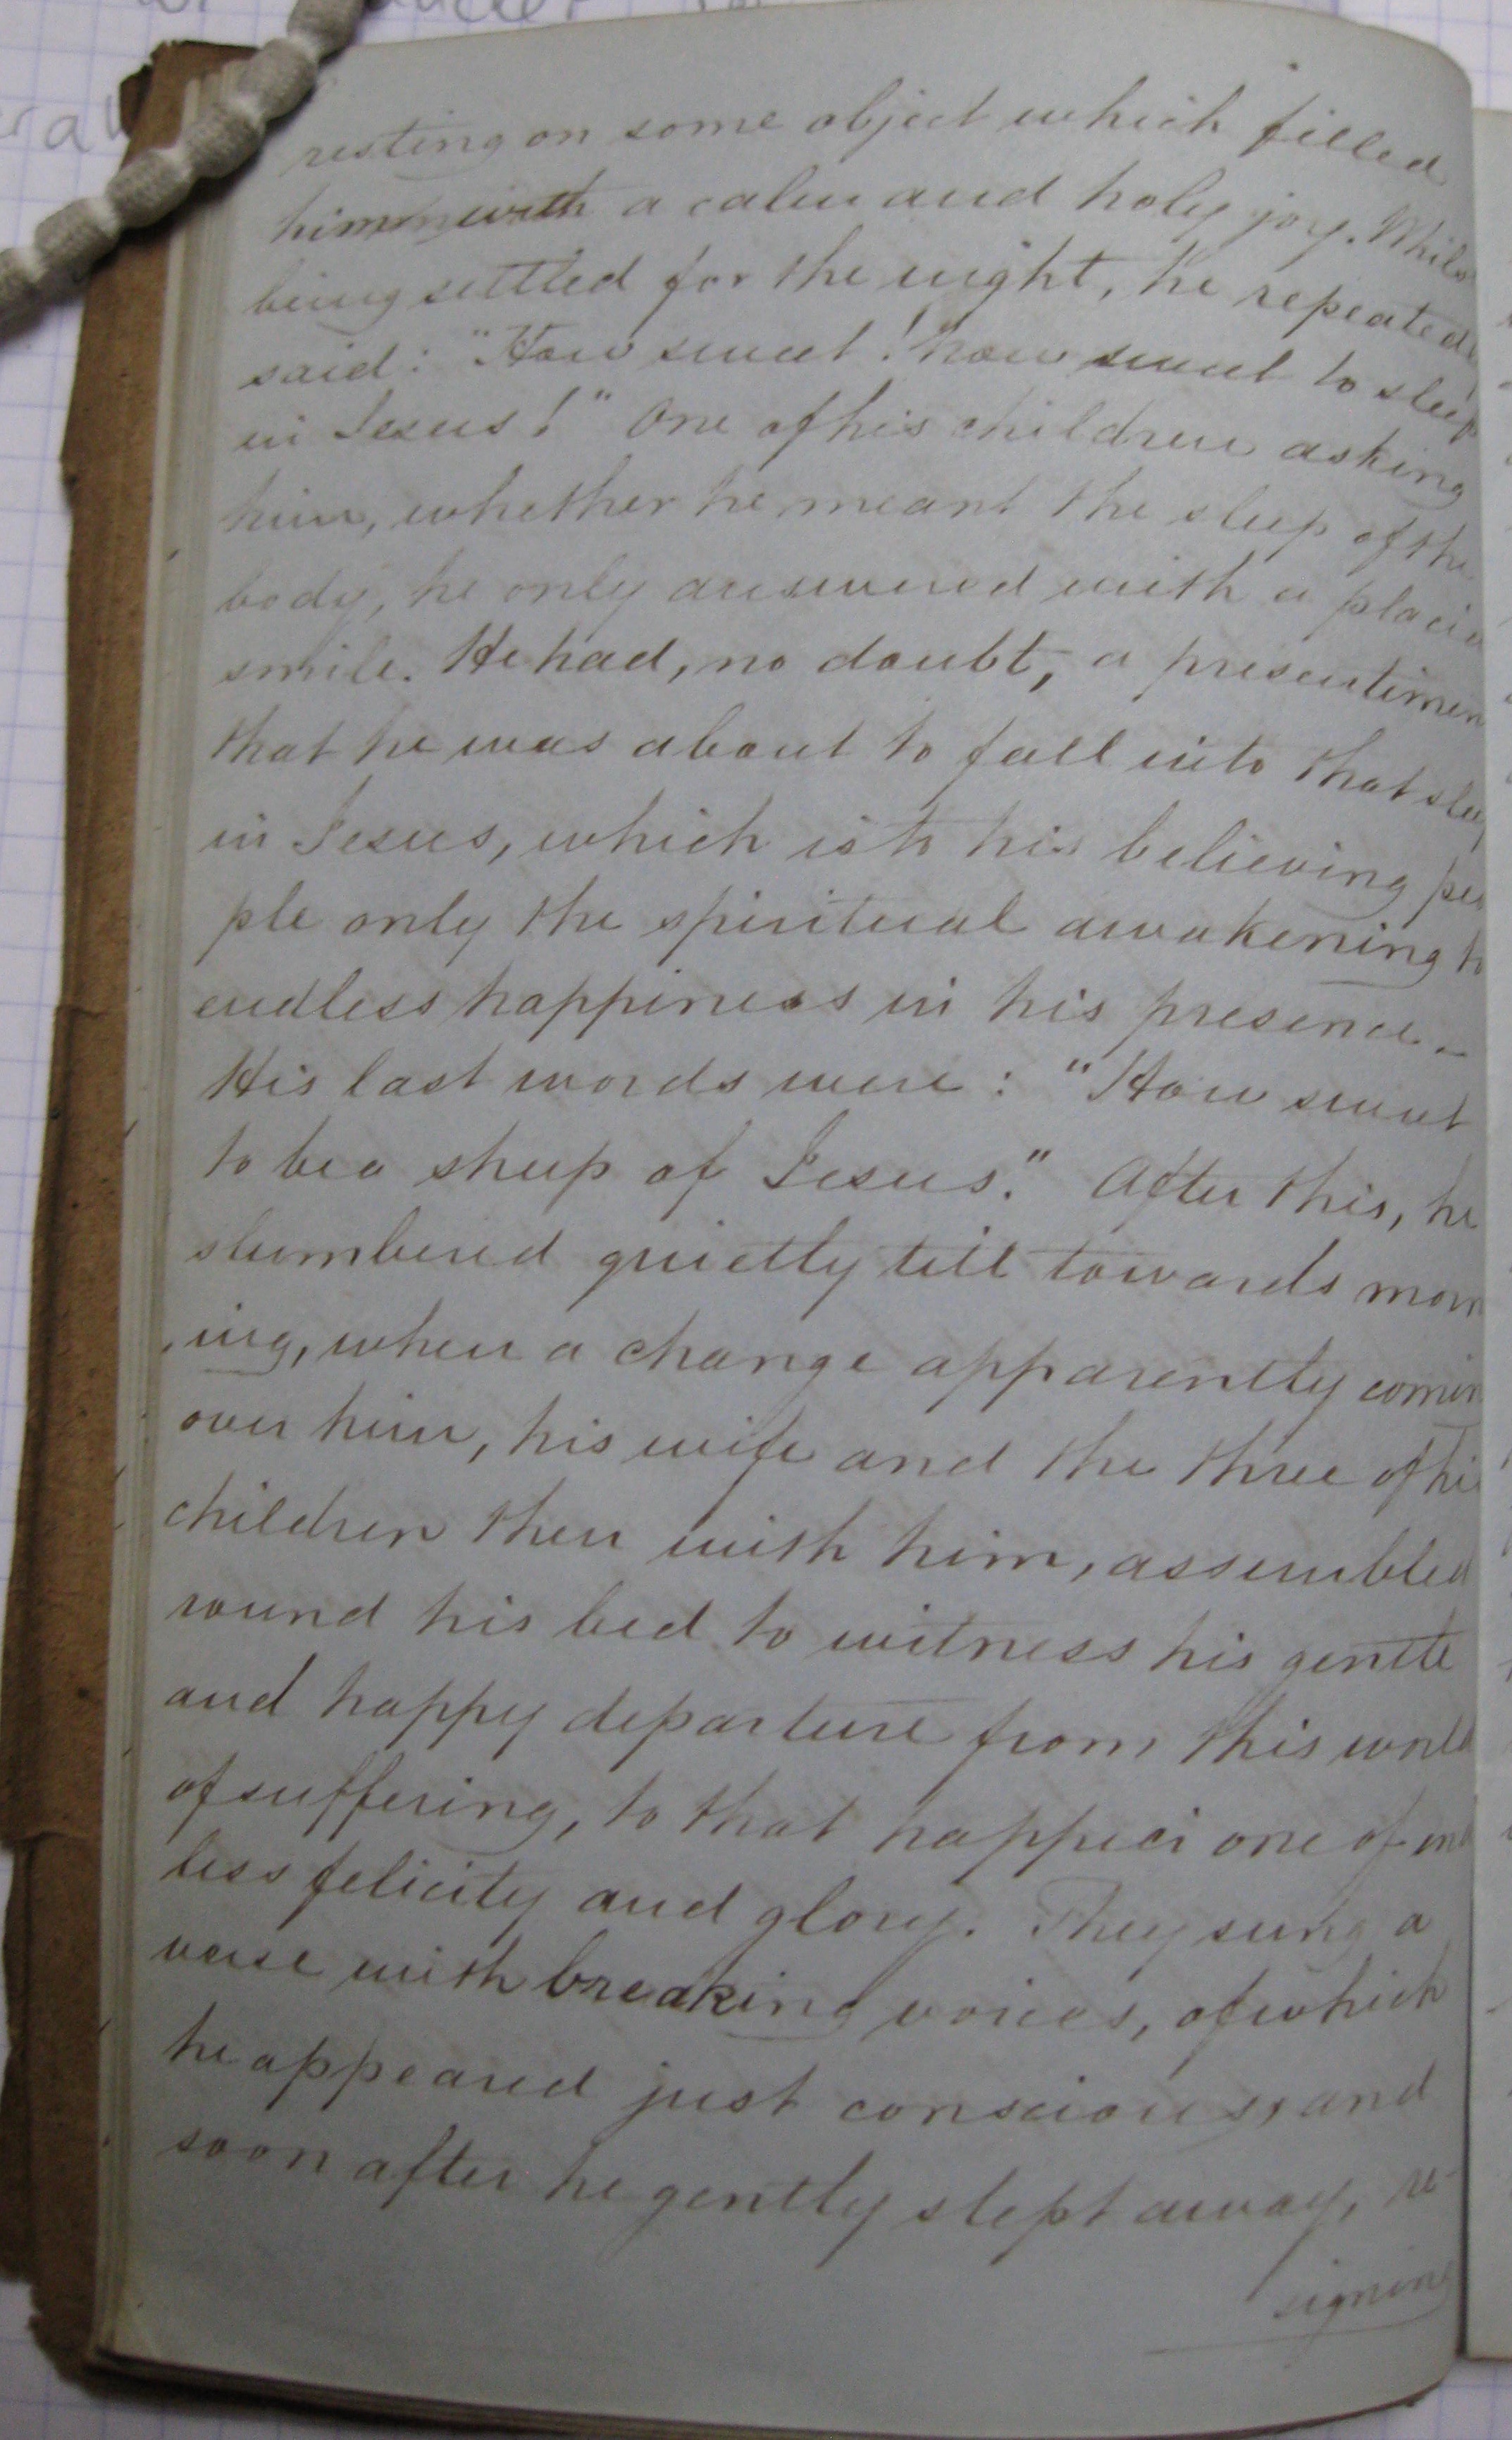 resting on some object which filled
him with a calm and holy joy. Whils
being settled for the night, he repeated
said: "How sweet! how sweet to sleep
in Jesus!" One of his children asking
him, whether he meant the sleep of the
body, he only answered with a placid
smile. He had, no doubt, a presentimen
that he was about to fall into that sleep
in Jesus, which is to his believing peo
ple only the spiritual awakening to
endless happiness in his presence.
His last words were: "How sweet
to be a sheep of Jesus." After this, he
slumbered quietly till towards morn
ing, when a change apparently comin
over him, his wife and the three of his
children then with him, assembled
round his bed to witness his gentle
and happy departure from this world
of suffering, to that happier one of end
less felicity and glory. They sung a
verse with breaking voices, of which
he appeared just conscious, and
soon after he gently slept away, re-
signing